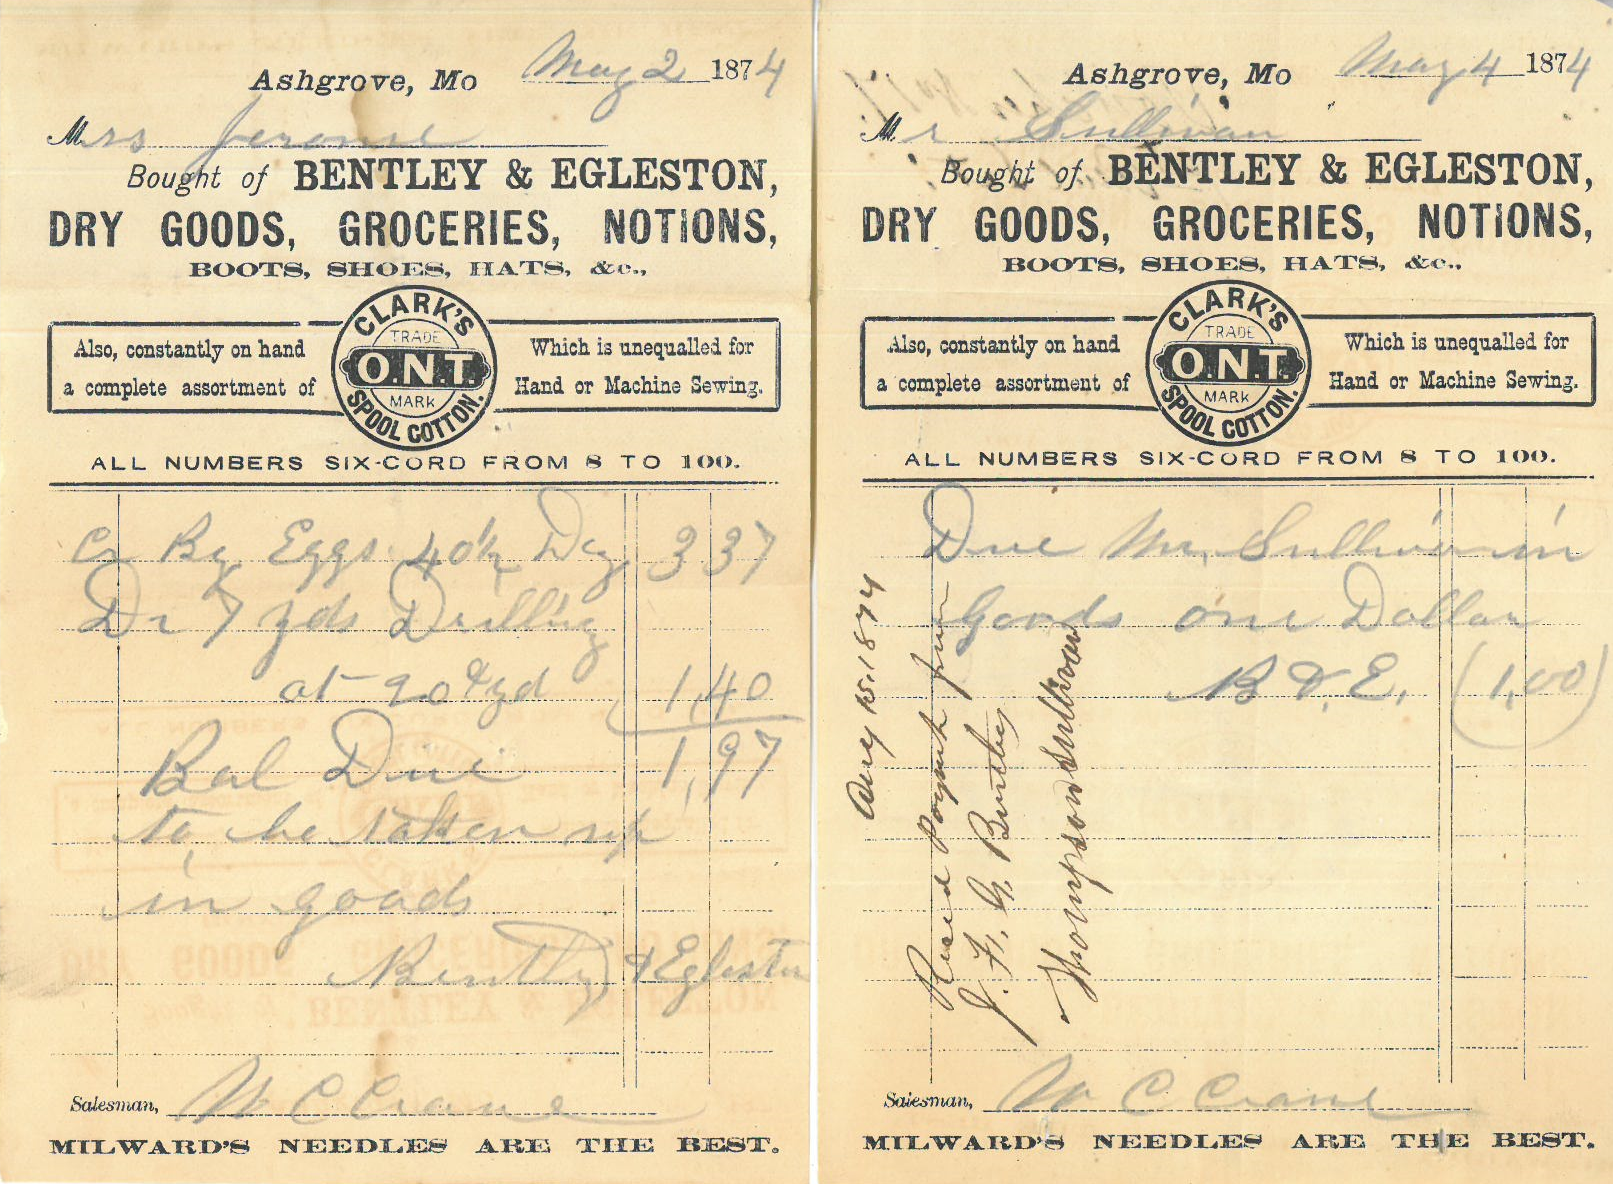 Ashgrove, Mo May 2 1874
Mrs Jerome
Bought of BENTLEY & EGLESTON,
DRY GOODS, GROCERIES, NOTIONS,
BOOTS, SHOES, HATS, &c.,
Also, constantly on hand
a complete assortment of
CLARK'S
TRADE
O.N.T.
MARK
SPOOL COTTON.
Which is unequalled for
Hand or Machine Sewing.
ALL NUMBERS SIX-CORD FROM 8 TO 100.
Cr By Eggs 40½ Dz 3 37
Dr 7 yds Drilling
at 20 ¢ yd 1,40
Bal Due 1,97
to be taken up
in goods
Bently & Egleston
Salesman, W C Crane
MILWARD'S NEEDLES ARE THE BEST.
Ashgrove, Mo May 4 1874
Mr Sullivan
Bought of BENTLEY & EGLESTON,
DRY GOODS, GROCERIES, NOTIONS,
BOOTS, SHOES, HATS, &c.,
Also, constantly on hand
a complete assortment of
CLARK'S
TRADE
O.N.T.
MARK
SPOOL COTTON.
Which is unequalled for
Hand or Machine Sewing.
ALL NUMBERS SIX-CORD FROM 8 TO 100.
Due Mr. Sullivan in
Goods one Dollar
B & E. (1,00)
Aug 15. 1874
Recd Paymt from
J. F. G. Bentley
Thompson Sullivan
Salesman, W C Crane
MILWARD'S NEEDLES ARE THE BEST.